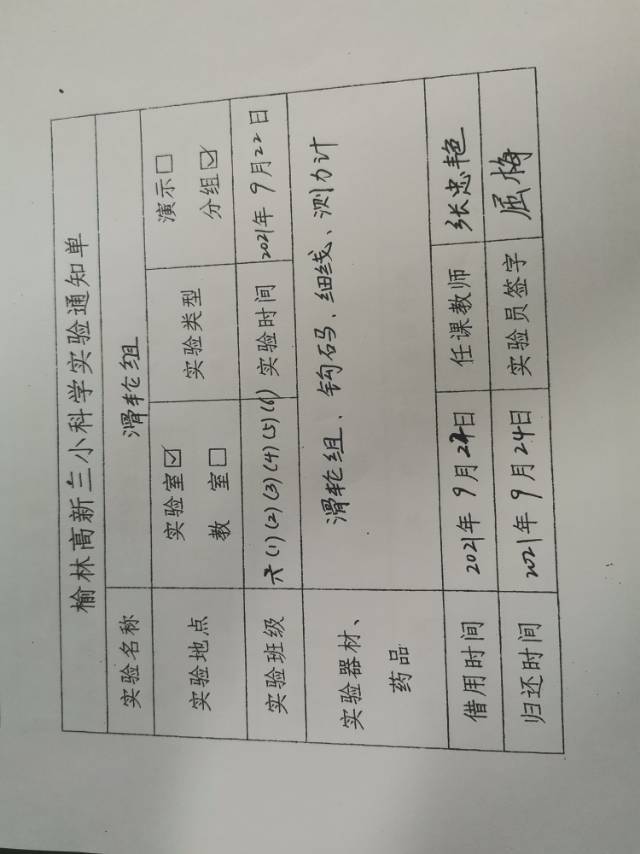 榆林高新三小科学实验通知单
实验名称 滑轮组
实验地点 实验室☑ 教 室□ 实验类型 演示□ 分组☑
实验班级 六(1)(2)(3)(4)(5)(6) 实验时间 2021年9月22日
实验器材、药品 滑轮组、钩码、细线、测力计
借用时间 2021年9月24日 任课教师 张忠艳
归还时间 2021年9月24日 实验员签字 屈梅